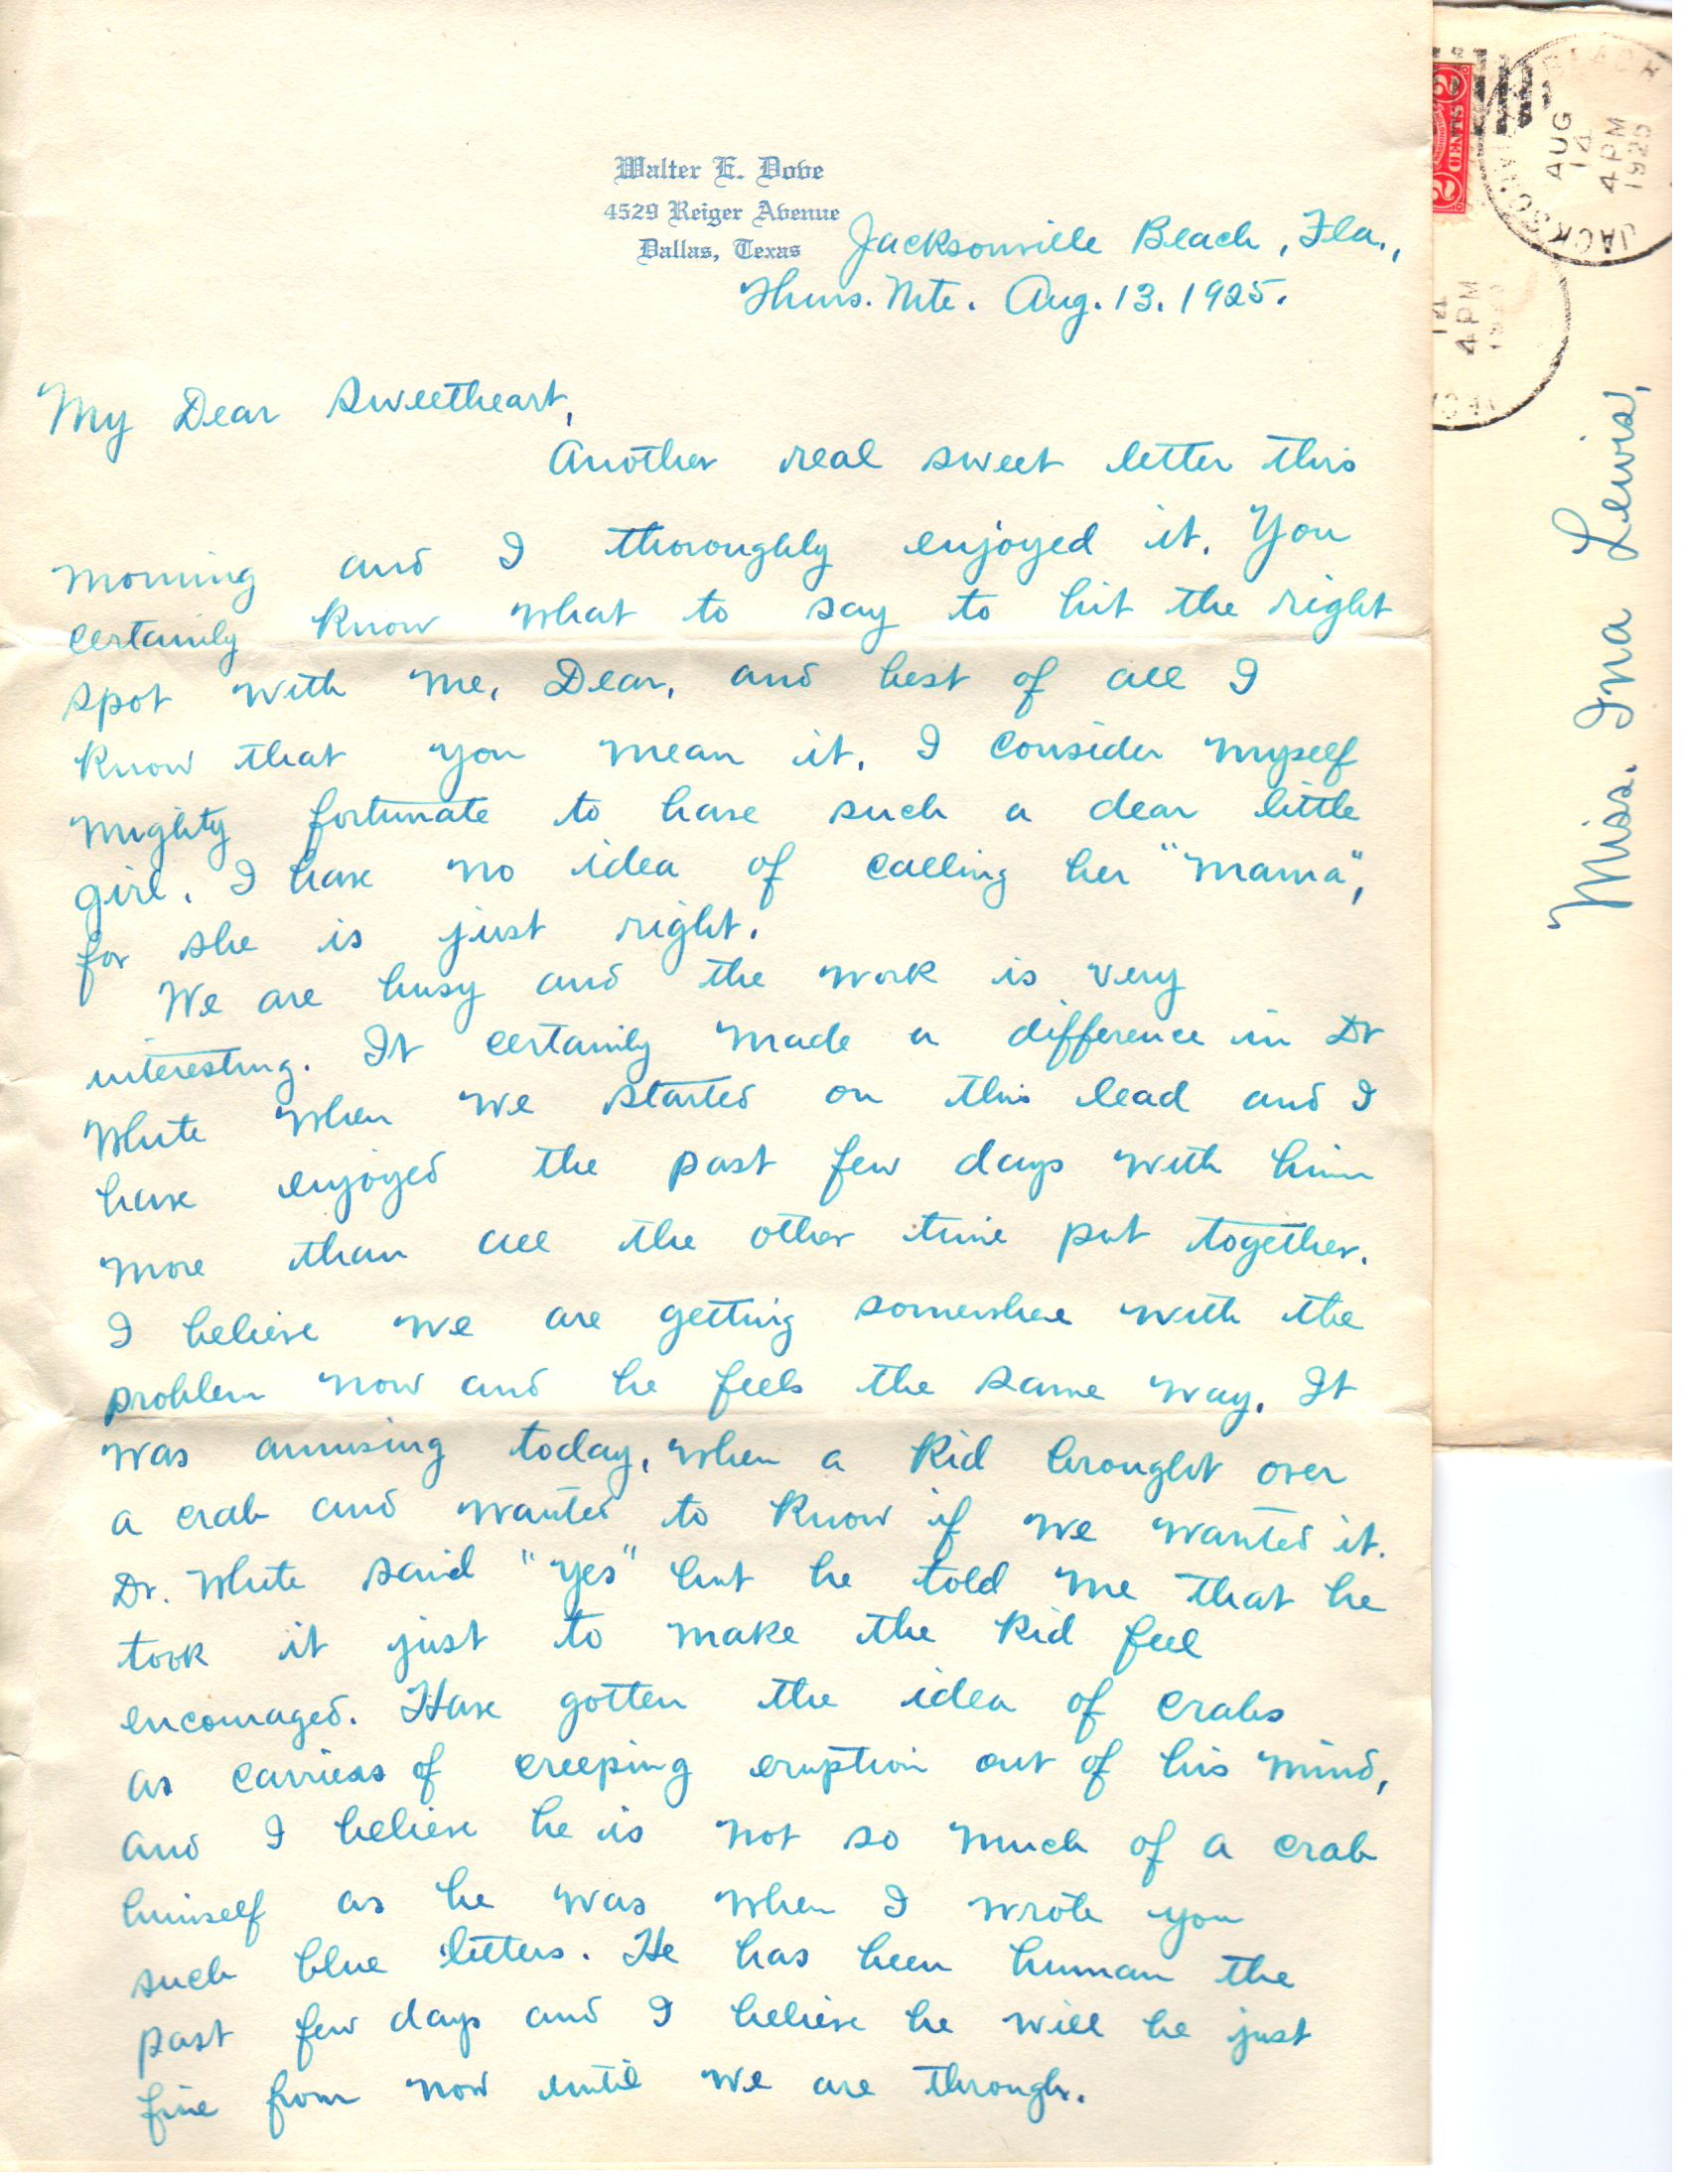 Walter E. Dove
4529 Reiger Avenue
Dallas, Texas
Jacksonville Beach, Fla.,
Thurs. Nite. Aug. 13. 1925.
My Dear Sweetheart,
Another real sweet letter this
morning and I thoroughly enjoyed it. You
certainly know what to say to hit the right
spot with me, Dear, and best of all I
know that you mean it. I consider myself
mighty fortunate to have such a dear little
girl. I have no idea of calling her "mama",
for she is just right.
We are busy and the work is very
interesting. It certainly made a difference in Dr
White when we started on this lead and I
have enjoyed the past few days with him
more than all the other time put together.
I believe we are getting somewhere with the
problem now and he feels the same way. It
was amusing today, when a kid brought over
a crab and wanted to know if we wanted it.
Dr. White said "yes" but he told me that he
took it just to make the kid feel
encouraged. Have gotten the idea of crabs
as carriers of creeping eruption out of his mind,
and I believe he is not so much of a crab
himself as he was when I wrote you
such blue letters. He has been human the
past few days and I believe he will be just
fine from now until we are through.
2 CENTS 2
JACKSONVILLE BEACH
AUG
14
4 PM
1925
14
4 PM
Miss. Ina Lewis,